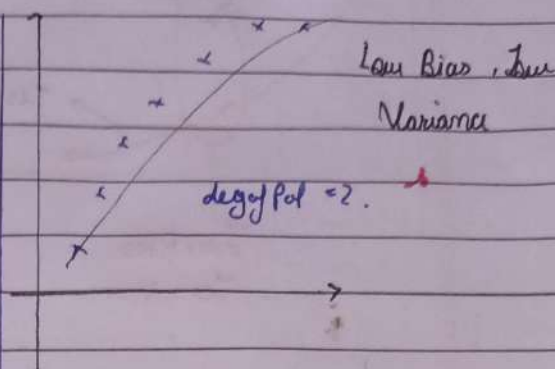 Low Bias, Low
Variance
deg of Pol = 2.